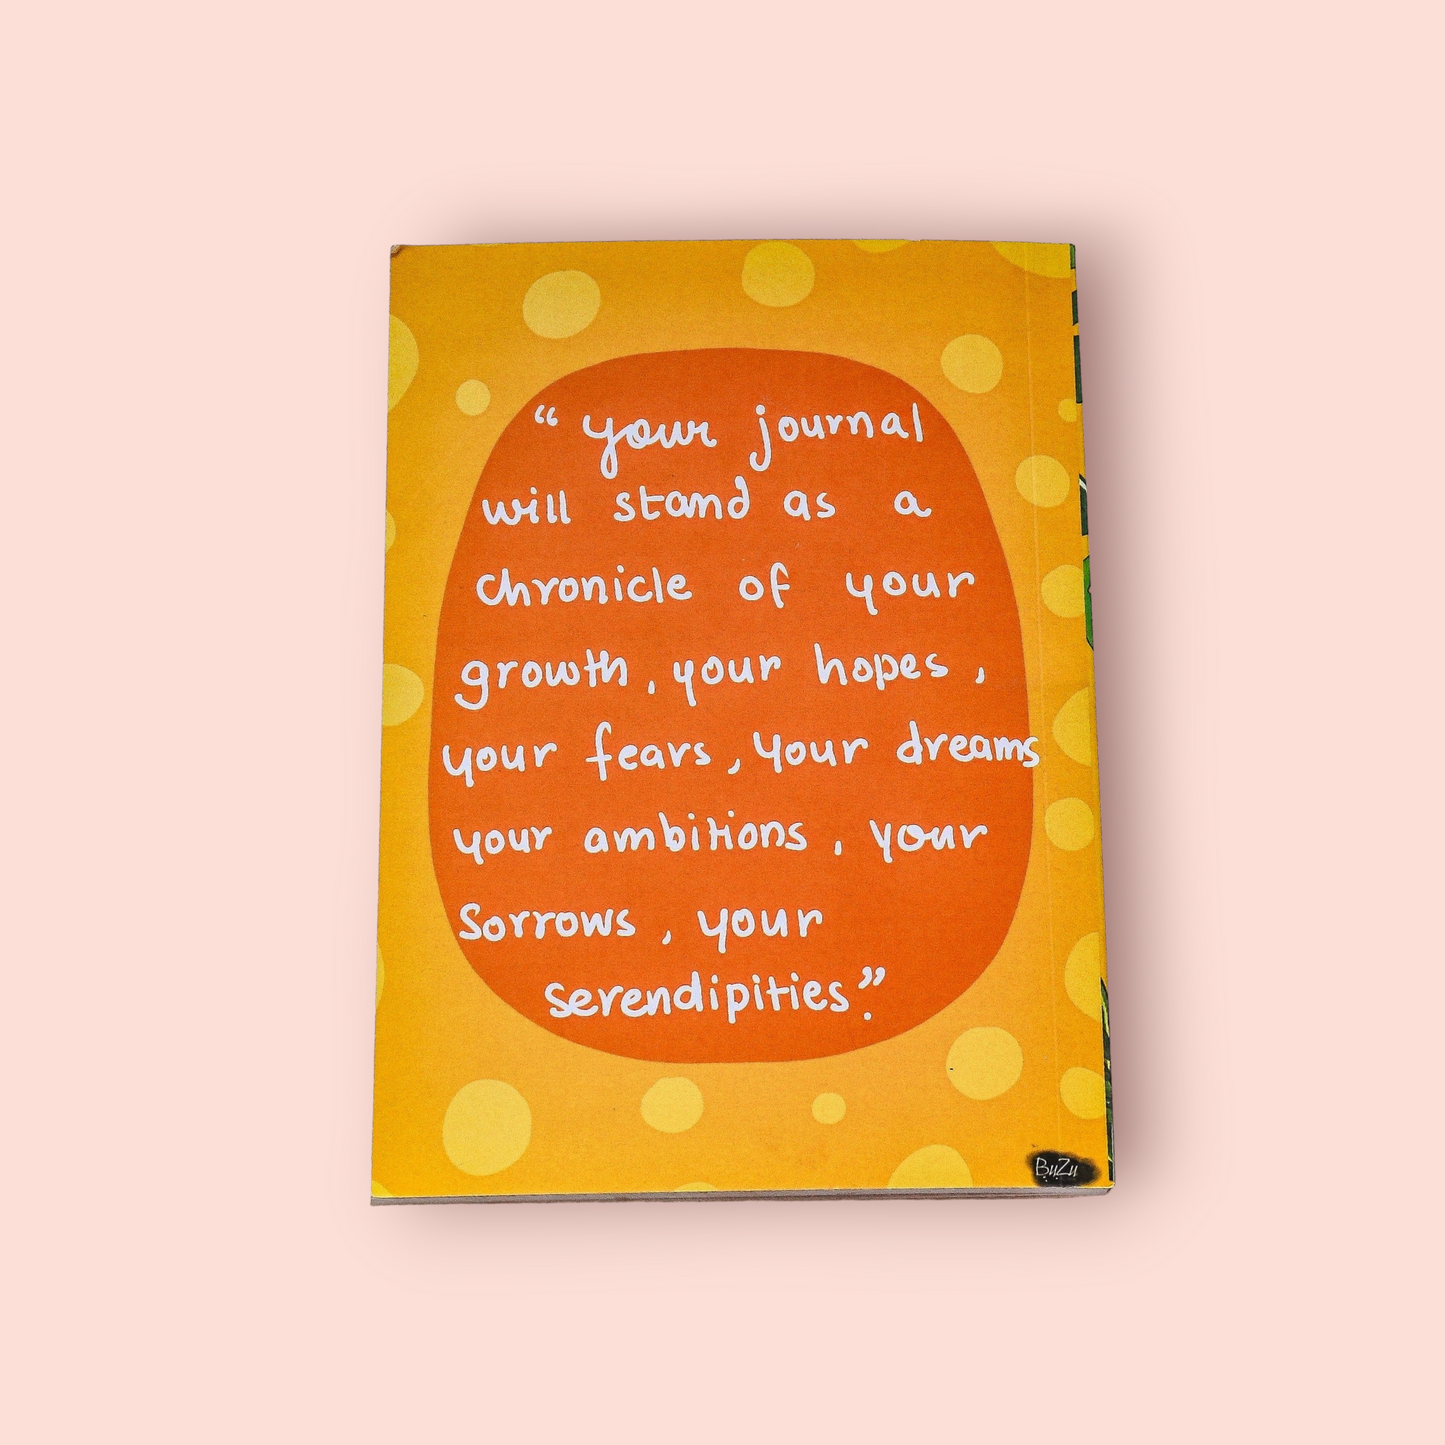 “ your journal
will stand as a
chronicle of your
growth , your hopes ,
your fears , your dreams
your ambitions , your
Sorrows , your
serendipities ”.
BuZu